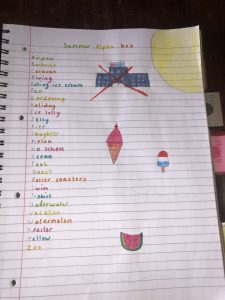 Summer Alpha box
Airport
Barbecue
Caravan
Diving
Eating ice cream
Fan
Gardening
Holiday
Ice lolly
Jelly
Kite
Laughter
Melon
No school
Ocean
Pool
Quest
Roller coasters
Swim
Tshirt
Underwater
Vacation
Watermelon
Yellow
Zoo